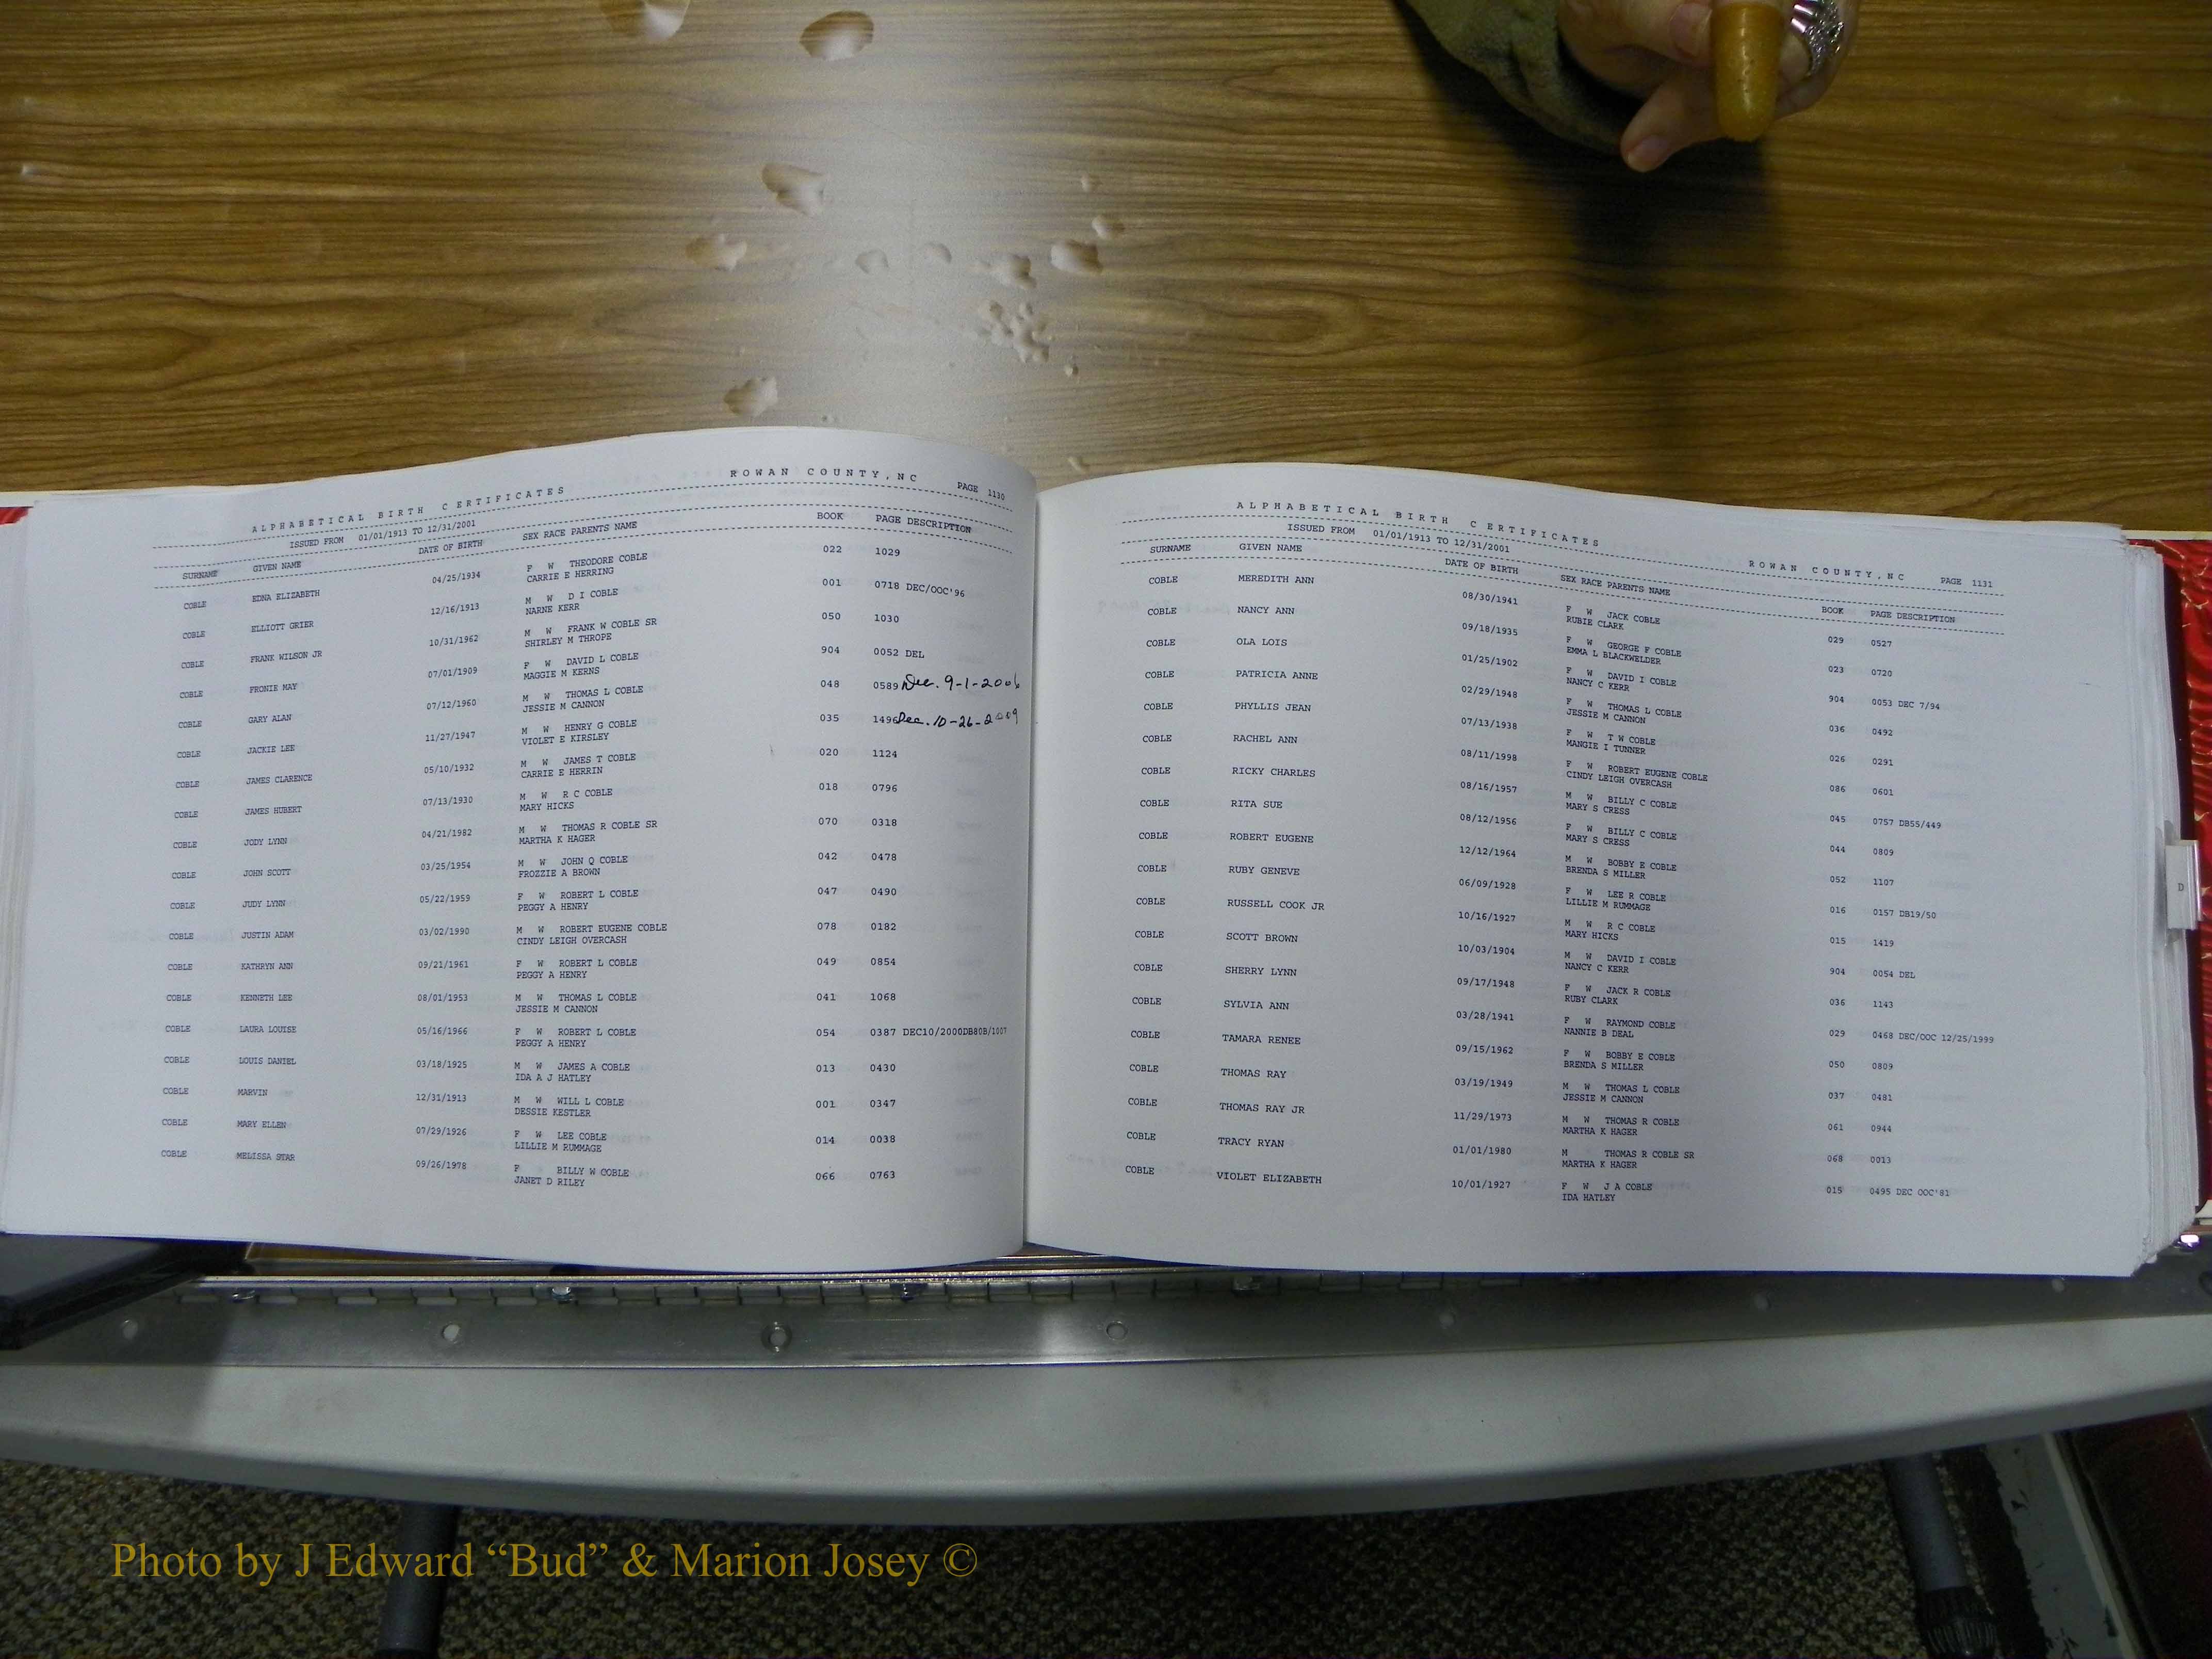 ALPHABETICAL BIRTH CERTIFICATES ROWAN COUNTY, NC PAGE 1130
ISSUED FROM 01/01/1913 TO 12/31/2001
SURNAME GIVEN NAME DATE OF BIRTH SEX RACE PARENTS NAME BOOK PAGE DESCRIPTION
COBLE EDNA ELIZABETH 04/25/1934 F W THEODORE COBLE 022 1029
CARRIE E HERRING
COBLE ELLIOTT GRIER 12/16/1913 M W D I COBLE 001 0718 DEC/OOC'96
NARNE KERR
COBLE FRANK WILSON JR 10/31/1962 M W FRANK W COBLE SR 050 1030
SHIRLEY M THROPE
COBLE FRONIE MAY 07/01/1909 F W DAVID L COBLE 904 0052 DEL
MAGGIE M KERNS
COBLE GARY ALAN 07/12/1960 M W THOMAS L COBLE 048 0589 Dec. 9-1-2006
JESSIE M CANNON
COBLE JACKIE LEE 11/27/1947 M W HENRY G COBLE 035 1496 Dec. 10-26-2009
VIOLET E KIRSLEY
COBLE JAMES CLARENCE 05/10/1932 M W JAMES T COBLE 020 1124
CARRIE E HERRIN
COBLE JAMES HUBERT 07/13/1930 M W R C COBLE 018 0796
MARY HICKS
COBLE JODY LYNN 04/21/1982 M W THOMAS R COBLE SR 070 0318
MARTHA K HAGER
COBLE JOHN SCOTT 03/25/1954 M W JOHN Q COBLE 042 0478
FROZZIE A BROWN
COBLE JUDY LYNN 05/22/1959 F W ROBERT L COBLE 047 0490
PEGGY A HENRY
COBLE JUSTIN ADAM 03/02/1990 M W ROBERT EUGENE COBLE 078 0182
CINDY LEIGH OVERCASH
COBLE KATHRYN ANN 09/21/1961 F W ROBERT L COBLE 049 0854
PEGGY A HENRY
COBLE KENNETH LEE 08/01/1953 M W THOMAS L COBLE 041 1068
JESSIE M CANNON
COBLE LAURA LOUISE 05/16/1966 F W ROBERT L COBLE 054 0387 DEC10/2000DB80B/1007
PEGGY A HENRY
COBLE LOUIS DANIEL 03/18/1925 M W JAMES A COBLE 013 0430
IDA A J HATLEY
COBLE MARVIN 12/31/1913 M W WILL L COBLE 001 0347
DESSIE KESTLER
COBLE MARY ELLEN 07/29/1926 F W LEE COBLE 014 0038
LILLIE M RUMMAGE
COBLE MELISSA STAR 09/26/1978 F BILLY W COBLE 066 0763
JANET D RILEY
ALPHABETICAL BIRTH CERTIFICATES ROWAN COUNTY, NC PAGE 1131
ISSUED FROM 01/01/1913 TO 12/31/2001
SURNAME GIVEN NAME DATE OF BIRTH SEX RACE PARENTS NAME BOOK PAGE DESCRIPTION
COBLE MEREDITH ANN 08/30/1941 F W JACK COBLE 029 0527
RUBIE CLARK
COBLE NANCY ANN 09/18/1935 F W GEORGE F COBLE 023 0720
EMMA L BLACKWELDER
COBLE OLA LOIS 01/25/1902 F W DAVID I COBLE 904 0053 DEC 7/94
NANCY C KERR
COBLE PATRICIA ANNE 02/29/1948 F W THOMAS L COBLE 036 0492
JESSIE M CANNON
COBLE PHYLLIS JEAN 07/13/1938 F W T W COBLE 026 0291
MANGIE I TUNNER
COBLE RACHEL ANN 08/11/1998 F W ROBERT EUGENE COBLE 086 0601
CINDY LEIGH OVERCASH
COBLE RICKY CHARLES 08/16/1957 M W BILLY C COBLE 045 0757 DB55/449
MARY S CRESS
COBLE RITA SUE 08/12/1956 F W BILLY C COBLE 044 0809
MARY S CRESS
COBLE ROBERT EUGENE 12/12/1964 M W BOBBY E COBLE 052 1107
BRENDA S MILLER
COBLE RUBY GENEVE 06/09/1928 F W LEE R COBLE 016 0157 DB19/50
LILLIE M RUMMAGE
COBLE RUSSELL COOK JR 10/16/1927 M W R C COBLE 015 1419
MARY HICKS
COBLE SCOTT BROWN 10/03/1904 M W DAVID I COBLE 904 0054 DEL
NANCY C KERR
COBLE SHERRY LYNN 09/17/1948 F W JACK R COBLE 036 1143
RUBY CLARK
COBLE SYLVIA ANN 03/28/1941 F W RAYMOND COBLE 029 0468 DEC/OOC 12/25/1999
NANNIE B DEAL
COBLE TAMARA RENEE 09/15/1962 F W BOBBY E COBLE 050 0809
BRENDA S MILLER
COBLE THOMAS RAY 03/19/1949 M W THOMAS L COBLE 037 0481
JESSIE M CANNON
COBLE THOMAS RAY JR 11/29/1973 M W THOMAS R COBLE 061 0944
MARTHA K HAGER
COBLE TRACY RYAN 01/01/1980 M THOMAS R COBLE SR 068 0013
MARTHA K HAGER
COBLE VIOLET ELIZABETH 10/01/1927 F W J A COBLE 015 0495 DEC OOC'81
IDA HATLEY
D
Photo by J Edward “Bud” & Marion Josey ©